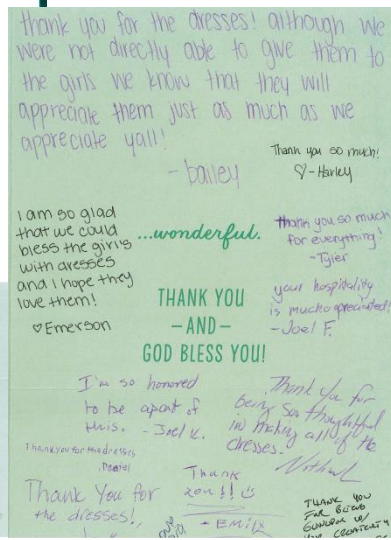 thank you for the dresses! although we
were not directly able to give them to
the girls we know that they will
appreciate them just as much as we
appreciate yall!
- bailey
Thank you so much!
♡-Harley
I am so glad
that we could
bless the girls
with dresses
and I hope they
love them!
♡Emerson
...wonderful.
thank you so much
for everything!
-Tyler
THANK YOU
-AND-
GOD BLESS YOU!
your hospitality
is much appreciated!
-Joel F.
I'm so honored
to be apart of
this. - Joel K.
Thank you for
being so thoughtful
in making all of the
dresses.
Thank you for the dresses
Thank you!! ☺
- EMILY
Thank You for
the dresses!,
THANK YOU
FOR BEING